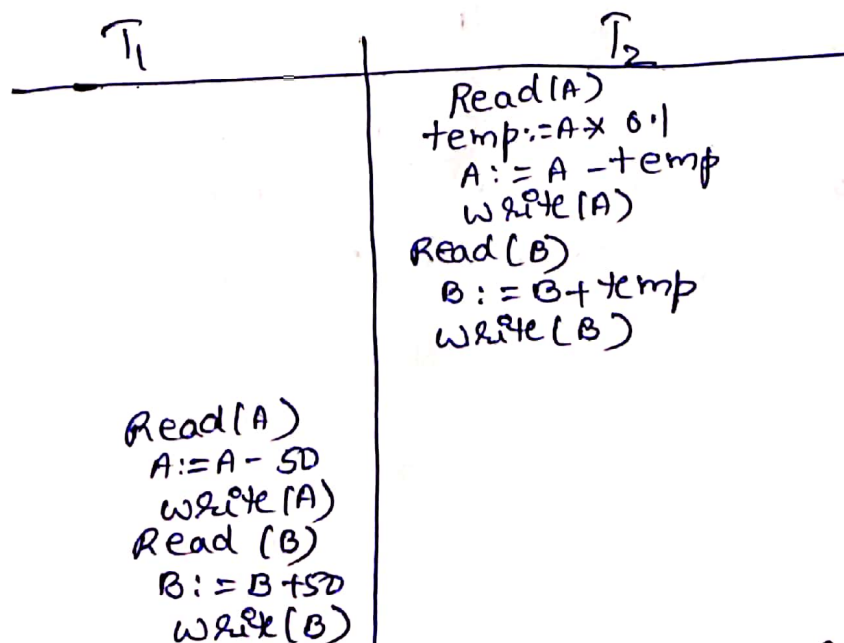 T1 T2
Read(A)
temp:=A* 0.1
A:= A - temp
write(A)
Read(B)
B:= B+ temp
write(B)
Read(A)
A:=A- 50
write(A)
Read (B)
B:= B+50
write(B)